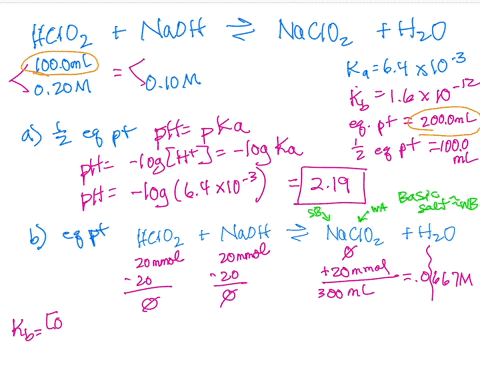 HClO₂ + NaOH ⇌ NaClO₂ + H₂O
100.0mL
0.20M
=
0.10M
Ka = 6.4 x10⁻³
Kb = 1.6 x10⁻¹²
eq. pt = 200.0mL
½ eq pt = 100.0 mL
a) ½ eq pt pH = pKa
pH = -log[H+] = -log Ka
pH = -log(6.4 x10⁻³) = 2.19
SB WA Basic salt ≈ WB
b) eq pt HClO₂ + NaOH ⇌ NaClO₂ + H₂O
20mmol 20mmol ∅
-20 -20 +20mmol
∅ ∅ 300mL = .0667M
Kb = [O